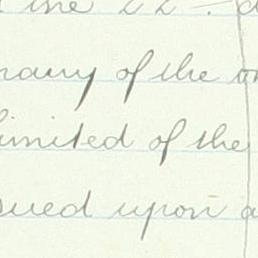 the 22
many of the
limited of the
sued upon a